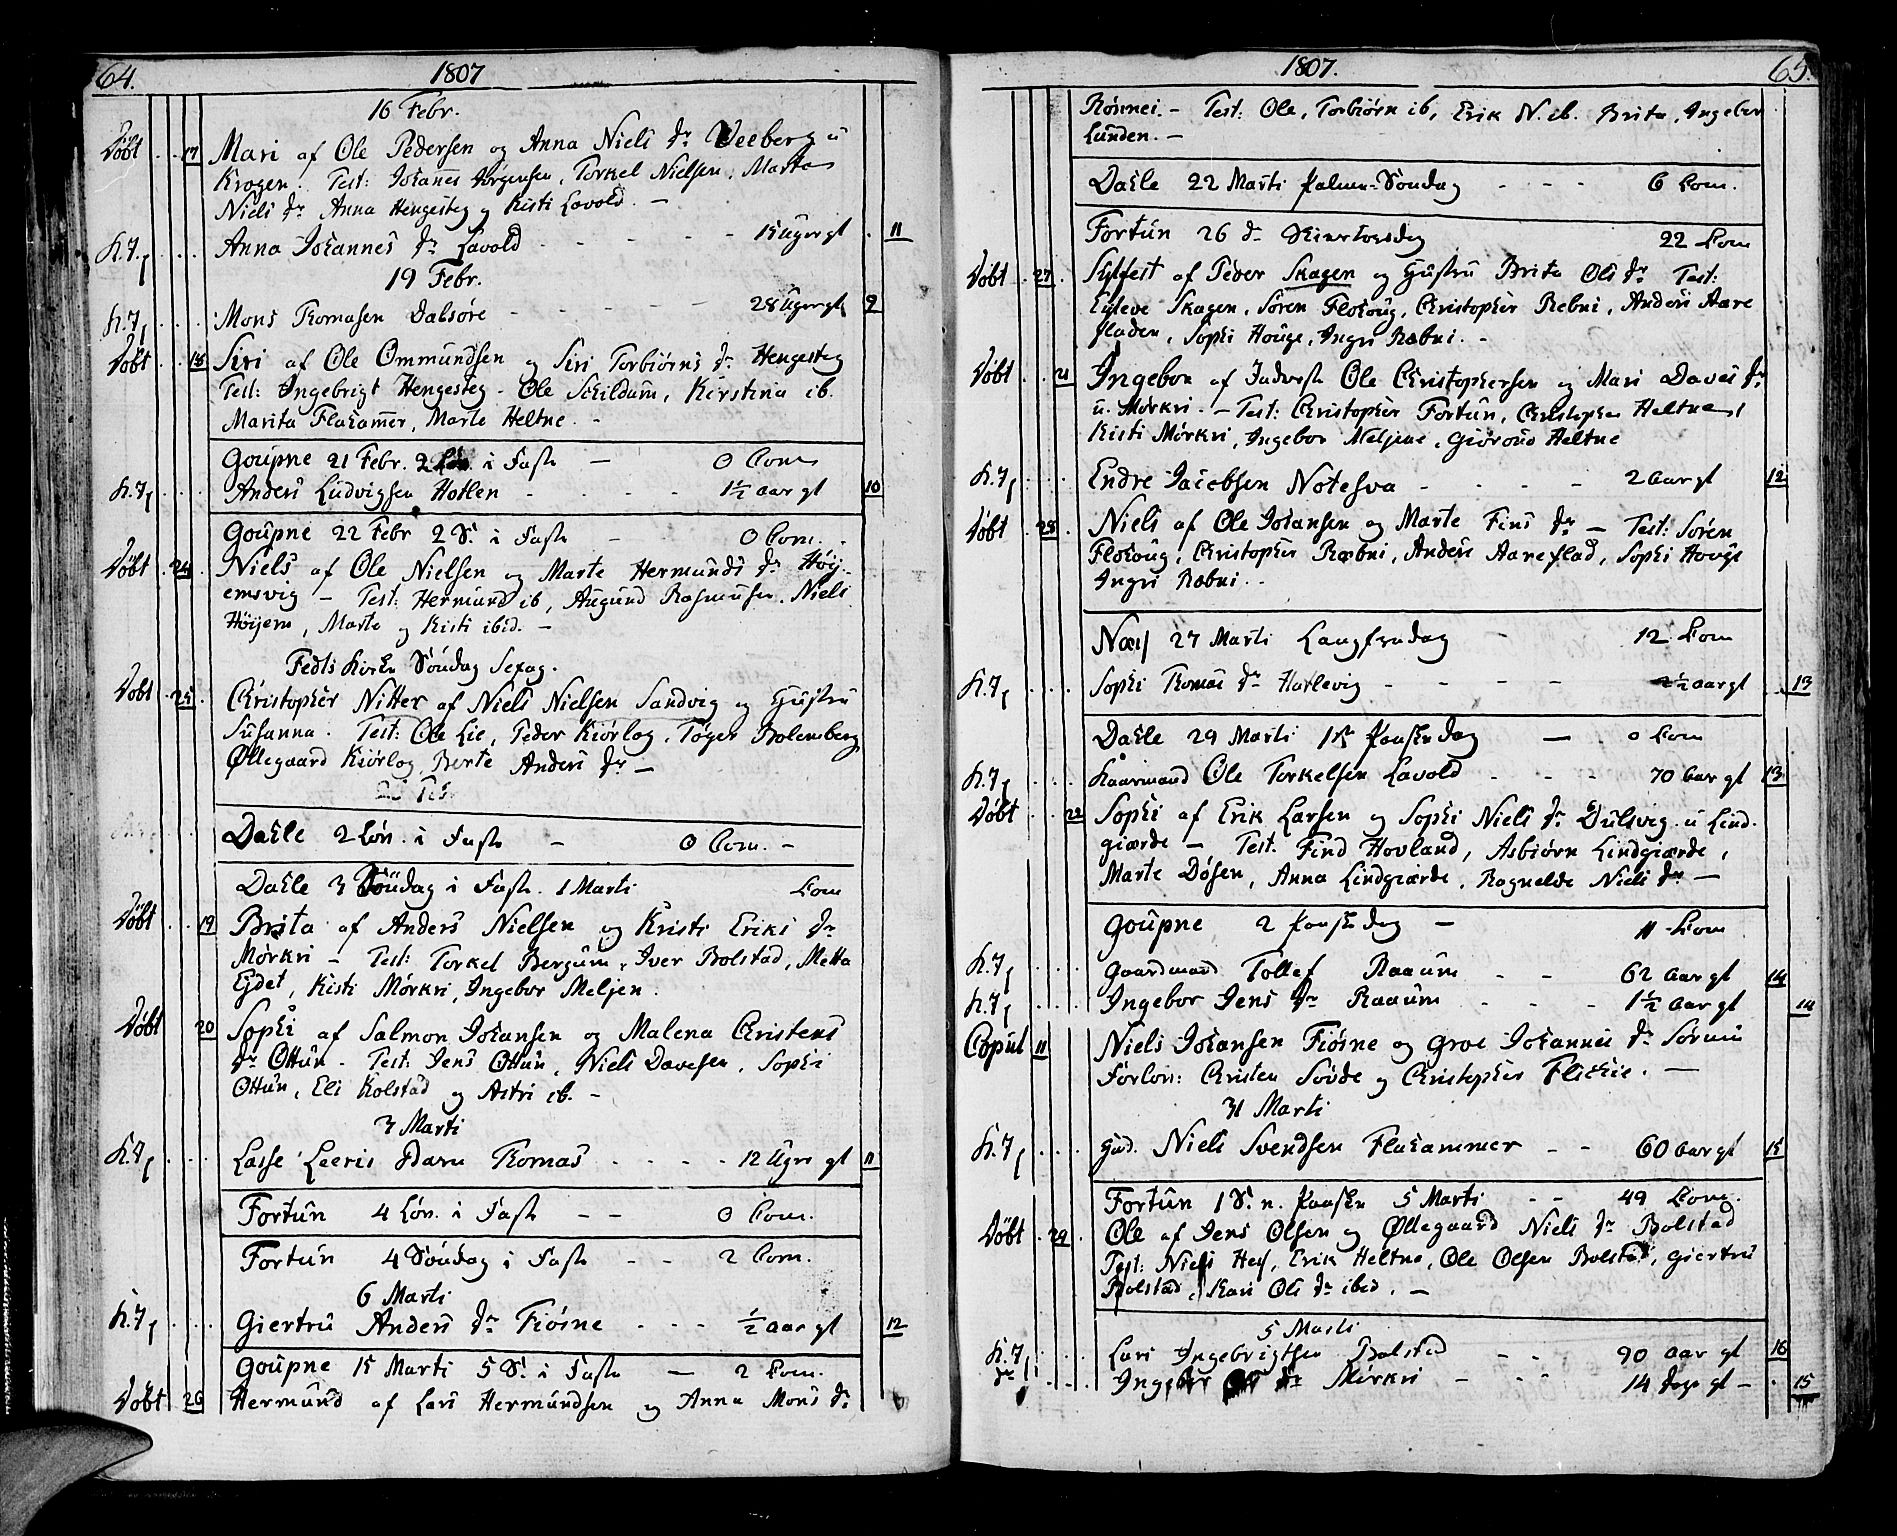 64. 1807
16 Febr.
Döbt 17 Mari af Ole Pedersen og Anna Niels dr Veeberg u
Krogen. Test: Johannes Jörgensen, Torkel Nielsen, Marta
Niels dr Anna Hengesteg og Kisti Lavold. —
K. J. Anna Johannes dr Lavold - - - 15 Uger gl 11
19 Febr.
K. J. Mons Thomasen Dalsöre - - - 28 Uger gl 9
Döbt 18 Siri af Ole Ommundsen og Siri Torbiörns dr Hengesteg
Test: Ingebrigt Hengesteg - Ole Schildum, Kirstina ib.
Marita Flahamer, Marte Heltne. -
Goupne 21 Febr. 2 Löv. i Faste — 0 Com
K. J. Anders Ludvigsen Hotlen - - - 1½ aar gl 10
Goupne 22 Febr 2 S. i Faste - 0 Com.
Döbt 24 Niels af Ole Nielsen og Marte Hermunds dr Höy-
emsvig — Test: Hermund ib, Augund Rasmusen. Niels
Höyem, Marte og Kisti ibid. —
Fedts Kirke Söndag Sexag.
Döbt 25 Christopher Nitter af Niels Nielsen Sandvig og Hustru
Susanna. Test: Ole Lie, Peder Kiörlog, Töger Bolensberg
Øllegaard Kiörlog Berte Anders dr —
Dahle 2 Löv. i Faste - 0 Com. -
Dahle 3 Söndag i Faste. 1 Marti Com
Döbt 19 Brita af Anders Nielsen og Kristi Eriks dr
Mörkri — Test: Torkel Bergum, Iver Bolstad, Metta
Eydet, Kisti Mörkri, Ingebor Meljen.
Döbt 20 Sophi af Salmon Johansen og Malena Christens
dr Ottun - Test: Jens Ottun, Niels Davesen, Sophi
Ottun, Eli Kolstad og Astri ib. -
3 Marti
K. J. Lasse Leeris Barn Thomas - - - 12 Uger gl 11
Fortun 4 Löv. i Faste - - 0 Com.
Fortun 4 Söndag i Faste - - 2 Com.
6 Marti
K. J. Giertru Anders dr Fiösne - - - ½ aar gl 12
Goupne 15 Marti 5 S. i Faste — 2 Com.
Döbt 26 Hermund af Lars Hermundsen og Anna Mons dr
1807. 65.
Rönnei. - Test: Ole, Torbiörn ib, Erik N. ib. Brita, Ingebor
Lunden. —
Dahle 22 Marti Palme-Söndag - - - 6 Com.
Fortun 26 d. Skiertorsdag 22 Com
Döbt 27 Sylfest af Peder Skagen og Hustru Brita Ols dr Test:
Eyleve Skagen, Sören Flohoug, Christopher Rebni, Anders Aare
fladen, Sophi Houge, Ingri Ræbni. -
Döbt 21 Ingebor af Inderste Ole Christophersen og Mari Daves dr
u. Mörkri. — Test: Christopher Fortun, Christopher Heltne,
Kisti Mörkri, Ingebor Meljene, Giöroud Heltne
K. J. Endre Jacobsen Notesva - - - 2 aar gl 12
Döbt 28 Niels af Ole Johansen og Marte Fins dr — Test: Sören
Flohoug, Christopher Ræbni, Anders Aareflad, Sophi Houge
Ingri Ræbni. -
Næs 27 Marti Langfredag - 12 Com
K. J. Sophi Thomas dr Harlevig - - - 2½ aar gl 13
Dahle 29 Marti 1ste Paaskedag — 0 Com
K. J. Kaarmand Ole Torkelsen Lavold - - - 70 aar gl 13
Döbt 22 Sophi af Erik Larsen og Sophi Niels dr Dulsvig u Lind-
giærde — Test. Find Hovland, Asbiörn Lindgiærde,
Marte Dösen, Anna Lindgiærde, Ragnelde Niels dr —
Goupne 2 Paaskedag — 11 Com
K. J. Gaardmand Tollef Raaum - - 62 aar gl 14
K. J. Ingebor Jens dr Raaum - - - 1½ aar gl 14
Copul 11 Niels Johansen Fiösne og Groe Johannes dr Sörum
Forlov: Christen Sövde og Christopher Flohoug. —
31 Marti
K. J. Hud. Niels Svendsen Flahammer - - 60 aar gl 15
Fortun 1 S. n. Paaske 5 Marti - - 49 Com.
Döbt 29 Ole af Jens Olsen og Øllegaard Niels dr Bolstad
Test: Niels Hey, Erik Heltne, Ole Olsen Bolstad, Giertru
Bolstad, Kari Ols dr ibid. —
5 Marti
K. J. Lars Ingebrigtsen Bolstad - - 90 aar gl 16
Ingebor dr Mörkri - - - 14 dage gl — 15